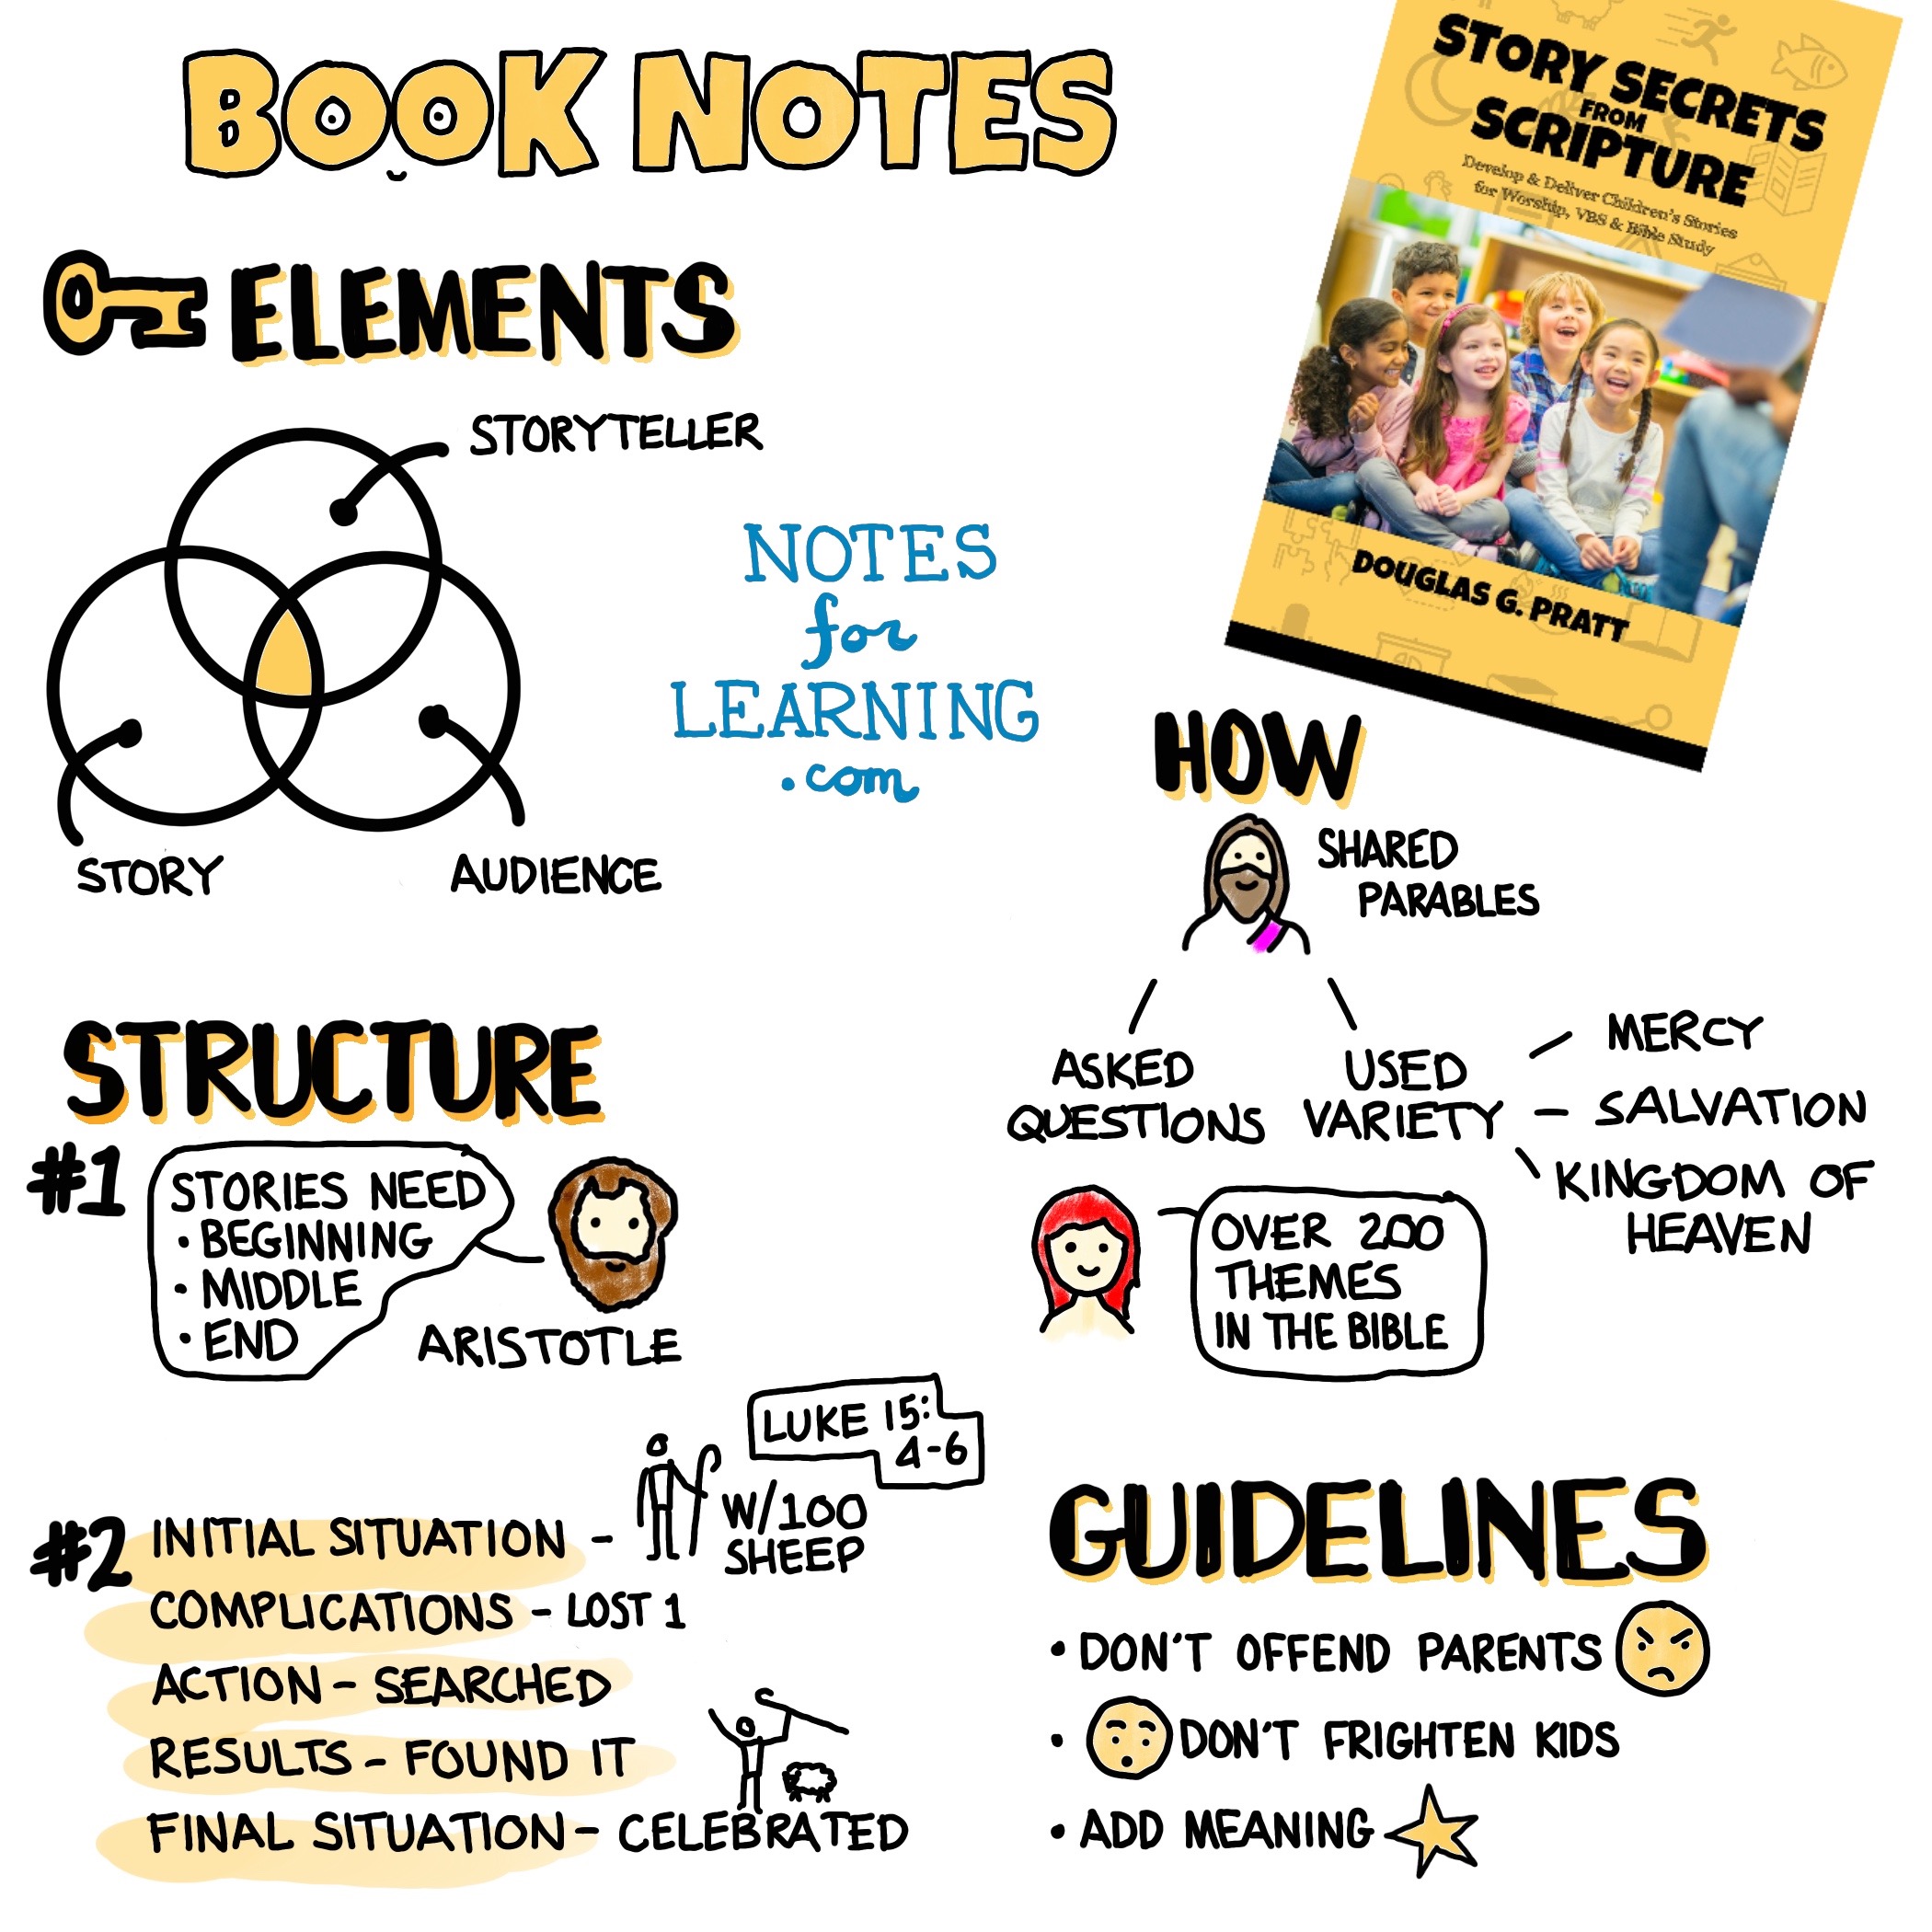 BOOK NOTES
STORY SECRETS
FROM
SCRIPTURE
Develop & Deliver Children's Stories
for Worship, VBS & Bible Study
DOUGLAS G. PRATT
ELEMENTS
STORYTELLER
STORY
AUDIENCE
NOTES
for
LEARNING
.com
HOW
SHARED
PARABLES
ASKED
QUESTIONS
USED
VARIETY
MERCY
SALVATION
KINGDOM OF
HEAVEN
OVER 200
THEMES
IN THE BIBLE
STRUCTURE
#1
STORIES NEED
• BEGINNING
• MIDDLE
• END
ARISTOTLE
LUKE 15:
4-6
#2
INITIAL SITUATION -
W/100
SHEEP
COMPLICATIONS - LOST 1
ACTION - SEARCHED
RESULTS - FOUND IT
FINAL SITUATION - CELEBRATED
GUIDELINES
• DON'T OFFEND PARENTS
• DON'T FRIGHTEN KIDS
• ADD MEANING